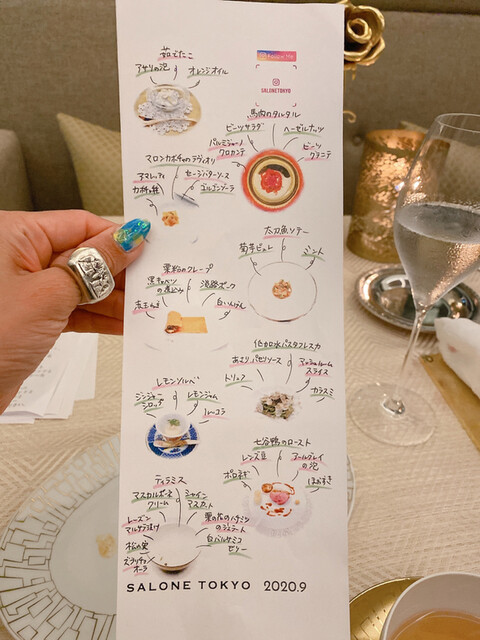 茹でたこ
アサリの泡
オレンジオイル
SALONETOKYO
馬肉のタルタル
ビーツサラダ
ヘーゼルナッツ
パルミジャーノ
クロカンテ
ビーツ
グラニテ
マロンカボチャのラヴィオリ
アマレッティ
セージバターソース
カボチャの種
ゴルゴンゾーラ
太刀魚ソテー
菊芋ピュレ
ミント
栗粉のクレープ
黒キャベツ
の煮込み
淡路ポーク
赤玉ねぎ
白いんげん
低加水パスタフレスカ
あさりパセリソース
マッシュルーム
スライス
トリュフ
カラスミ
レモンソルベ
ジンジャー
シロップ
レモンジャム
ルーコラ
七谷鴨のロースト
レンズ豆
アールグレイ
の泡
ポロネギ
ほおずき
ティラミス
マスカルポーネ
クリーム
シャイン
マスカット
レーズン
マルサラ漬け
栗の花のハチミツ
のジェラート
松の実
白バルサミコ
ゼリー
ズブリチョ
オーラ
SALONE TOKYO 2020.9